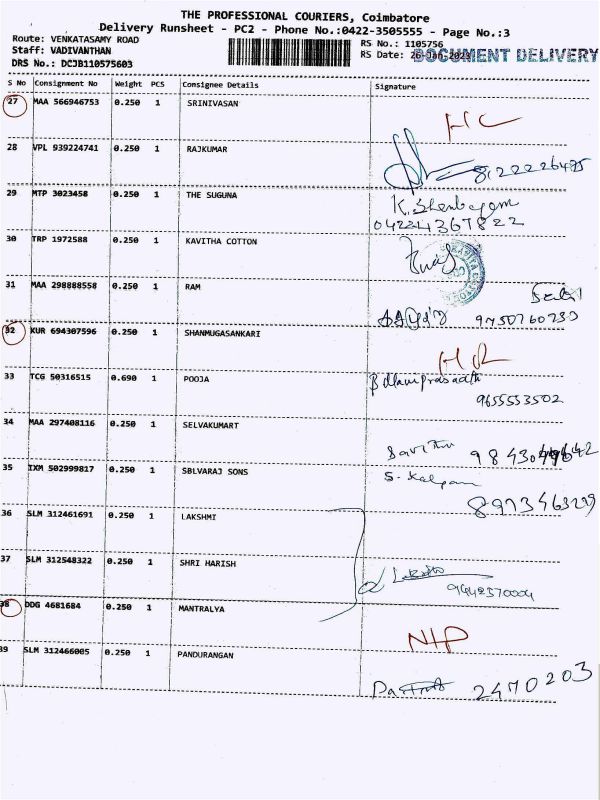 THE PROFESSIONAL COURIERS, Coimbatore
Delivery Runsheet - PC2 - Phone No.:0422-3505555 - Page No.:3
Route: VENKATASAMY ROAD
Staff: VADIVANTHAN
DRS No.: DCJB110575603
RS No.: 1105756
RS Date: 26-Jan-2023
DOCUMENT DELIVERY
S No Consignment No Weight PCS Consignee Details Signature
27 MAA 566946753 0.250 1 SRINIVASAN
28 VPL 939224741 0.250 1 RAJKUMAR
29 MTP 3023458 0.250 1 THE SUGUNA
K. Shenbagam
04224367822
30 TRP 1972588 0.250 1 KAVITHA COTTON
31 MAA 298888558 0.250 1 RAM
9750760230
32 KUR 694307596 0.250 1 SHANMUGASANKARI
33 TCG 50316515 0.690 1 POOJA
9655553502
34 MAA 297408116 0.250 1 SELVAKUMART
35 IXM 502999817 0.250 1 SBLVARAJ SONS
S. Kalpana
36 SLM 312461691 0.250 1 LAKSHMI
37 SLM 312548322 0.250 1 SHRI HARISH
9442570004
38 DDG 4681684 0.250 1 MANTRALYA
39 SLM 312466005 0.250 1 PANDURANGAN
2470203